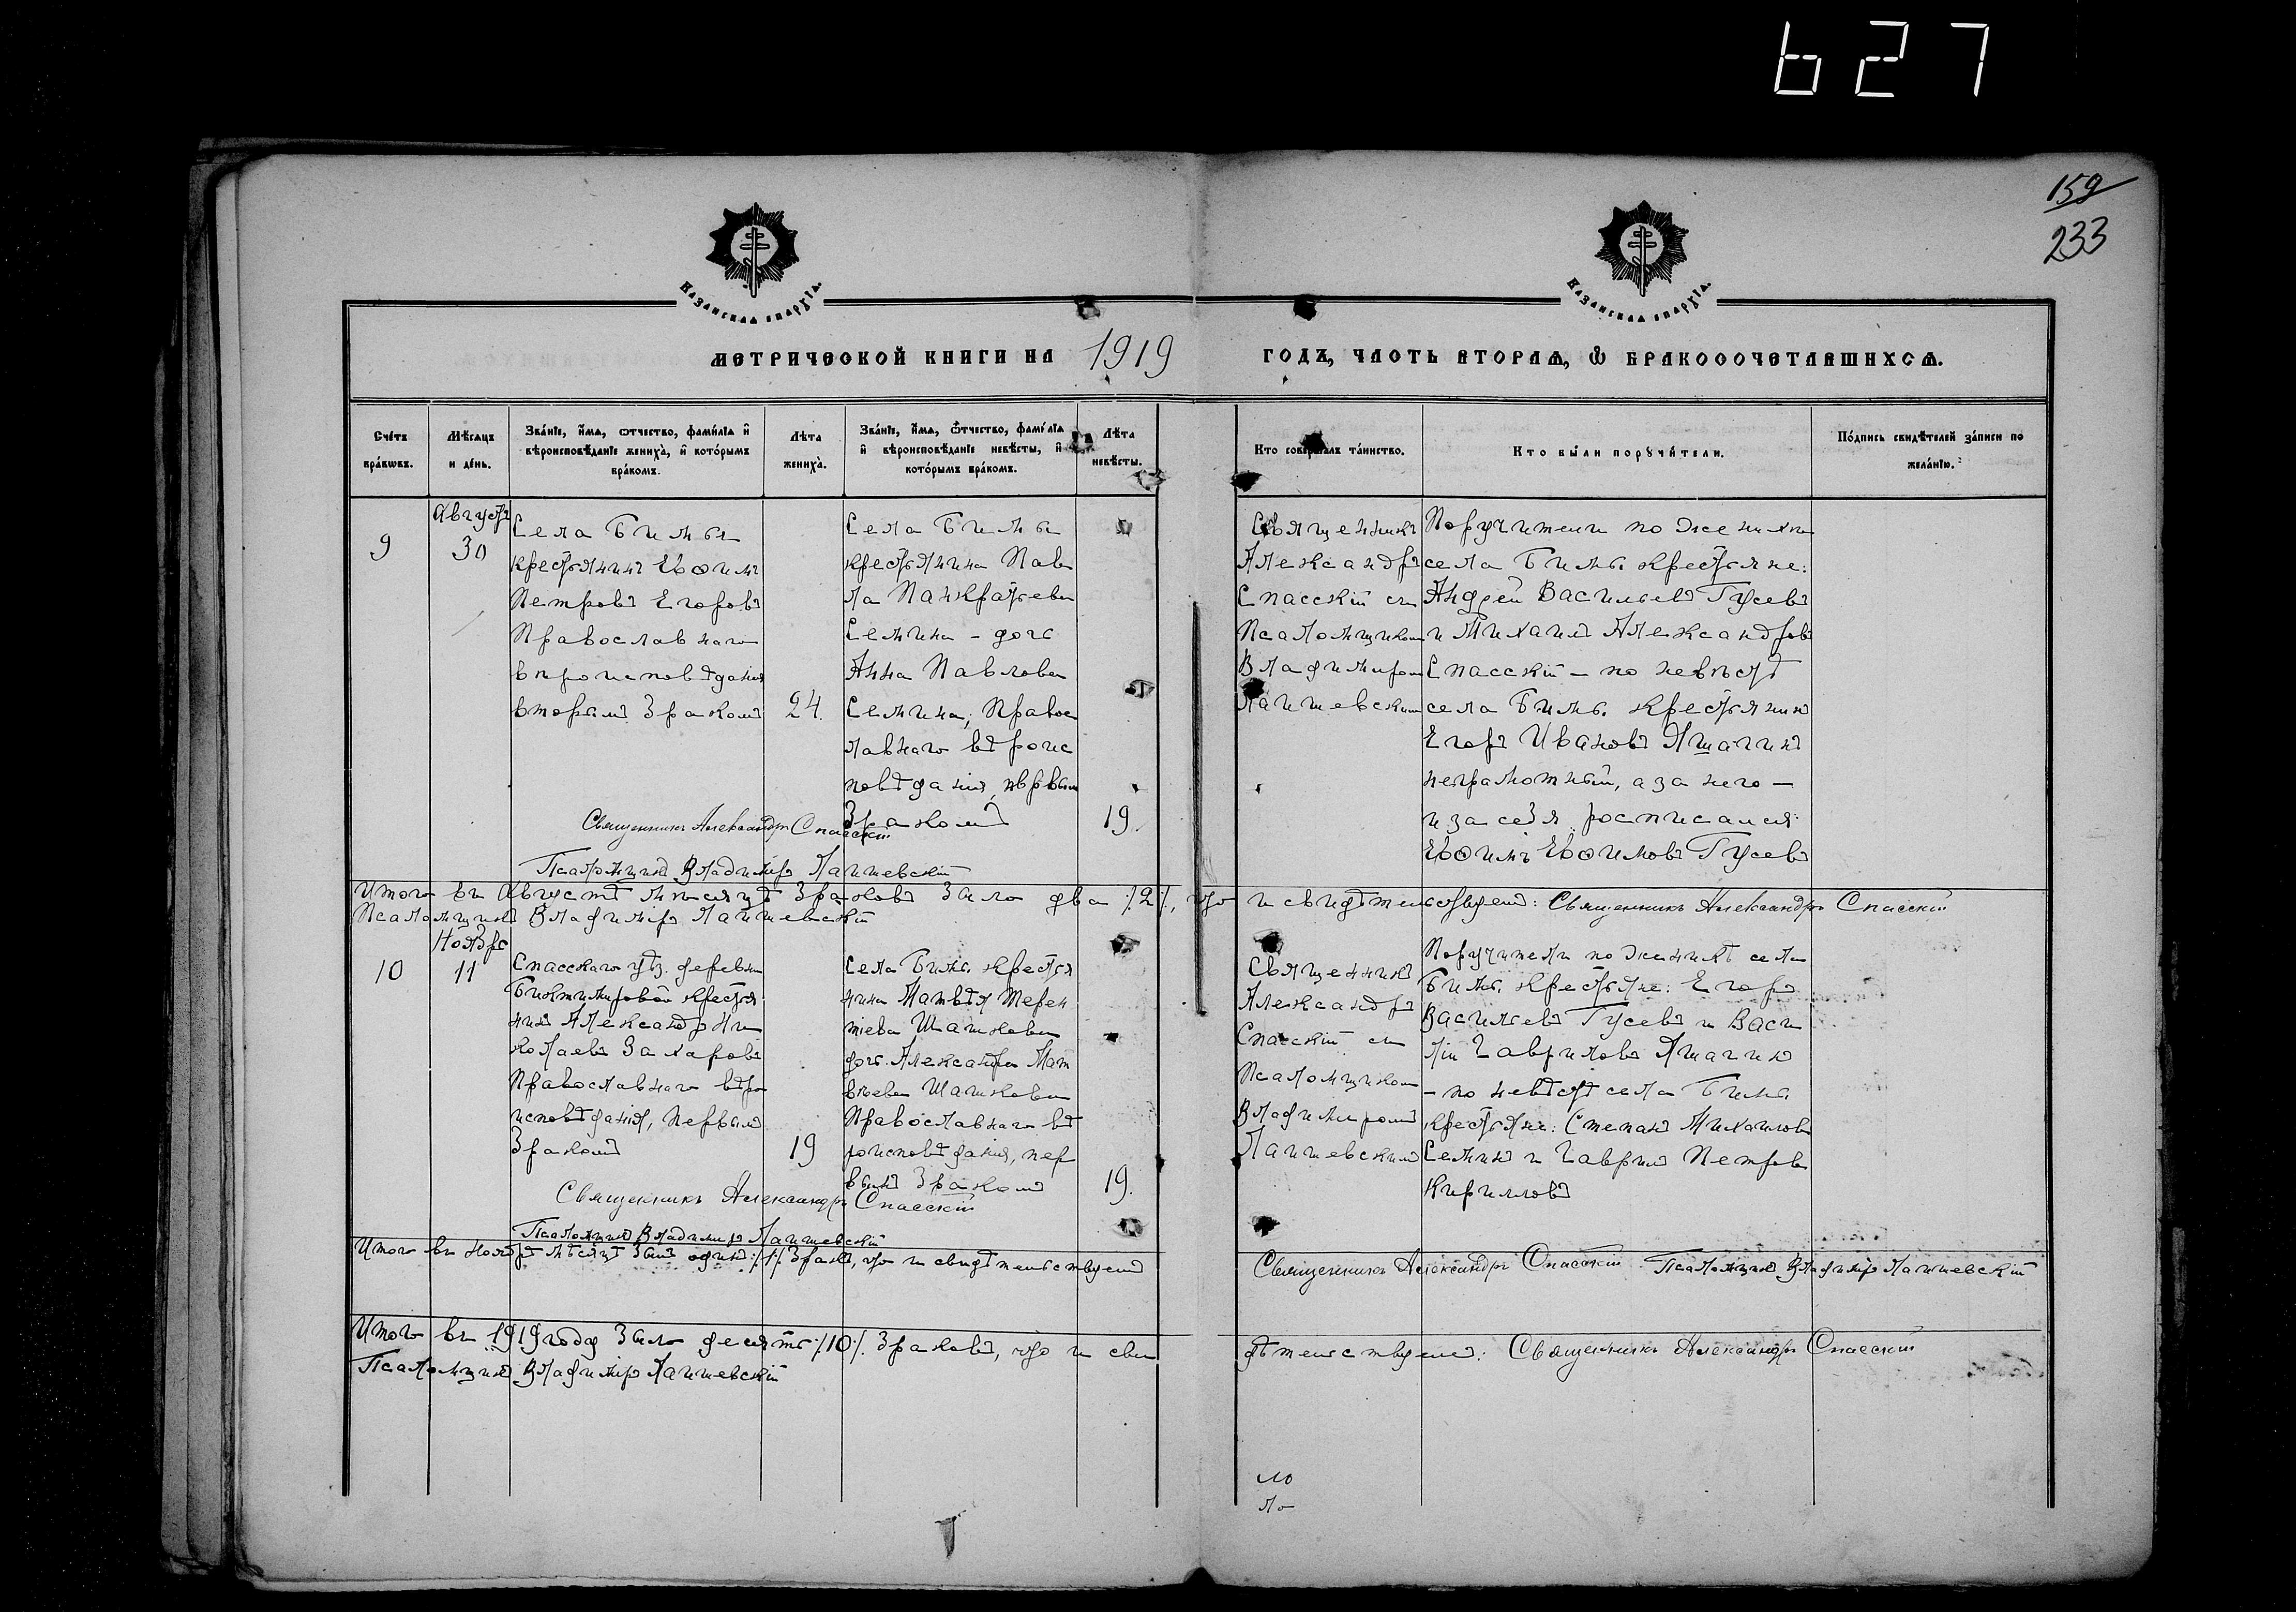 627
159
233
КАЗАНСКАЯ ЕПАРХІЯ.
КАЗАНСКАЯ ЕПАРХІЯ.
МЕТРИЧЕСКОЙ КНИГИ НА 1919 ГОДЪ, ЧАСТЬ ВТОРАЯ, Ѡ БРАКОСОЧЕТАВШИХСЯ.
Счетъ браковъ.
Мѣсяцъ и день.
Званіе, имя, отчество, фамилія и
вѣроисповѣданіе жениха, и которымъ
бракомъ.
Лѣта
жениха.
Званіе, имя, отчество, фамилія
и вѣроисповѣданіе невѣсты, и
которымъ бракомъ.
Лѣта
невѣсты.
Кто совершалъ таинство.
Кто были поручители.
Подпись свидѣтелей записи по
желанію.
9
Августъ
30
Села Бимы
крестьянинъ Евѳимъ
Петровъ Егоровъ
Православнаго
вѣроисповѣданія
вторымъ бракомъ
24.
Села Бимы
крестьянина Пав
ла Панкратьева
Семина - дочь
Анна Павлова
Семина, Правос
лавнаго вѣроис
повѣданія, первым
бракомъ
19.
Священникъ
Александръ
Спасскій съ
Псаломщиком
Владимиром
Лаишевским
Поручители по женихѣ
села Бимы крестьяне:
Андрей Васильевъ Гусевъ
и Михаилъ Александровъ
Спасскій — по невѣстѣ
села Бимы крестьянинъ
Егоръ Ивановъ Ямагинъ
неграмотный, а за него —
и за себя росписался:
Евѳимъ Евѳимовъ Гусевъ
Священникъ Александръ Спасскій
Псаломщикъ Владимиръ Лаишевскій
Итого въ Августѣ мѣсяцѣ браковъ было два /2/, что и свидѣтельствуемъ: Священникъ Александръ Спасскій
Псаломщикъ Владимиръ Лаишевскій
10
Ноябрь
11
Спасскаго уѣз. деревни
Бикмировой крестья
нинъ Александр Ни
колаевъ Захаровъ
Православнаго вѣро
исповѣданія, первымъ
бракомъ
19
Села Бимы крестья
нина Матвѣя Терен
тьева Шашкова
дочь Александра Мат
вѣева Шашкова
Православнаго вѣ
роисповѣданія, пер
вымъ бракомъ
19.
Священникъ
Александръ
Спасскій съ
Псаломщиком
Владимиромъ
Лаишевскимъ
Поручители по женихѣ села
Бимы крестьяне: Егоръ
Васильевъ Гусевъ и Васи
лій Гавриловъ Ямагинъ
- по невѣстѣ села Бимы
крестьяне: Степанъ Михаилов
Семинъ и Гаврилъ Петров
Кирилловъ
Священникъ Александръ Спасскій
Псаломщикъ Владимиръ Лаишевскій
Итого въ Ноябрѣ мѣсяцѣ былъ одинъ /1/ бракъ, что и свидѣтельствуемъ
Священникъ Александръ Спасскій Псаломщикъ Владимиръ Лаишевскій
Итого въ 1919 году было десять /10/ браковъ, что и свидѣтельствуемъ: Священникъ Александръ Спасскій
Псаломщикъ Владимиръ Лаишевскій